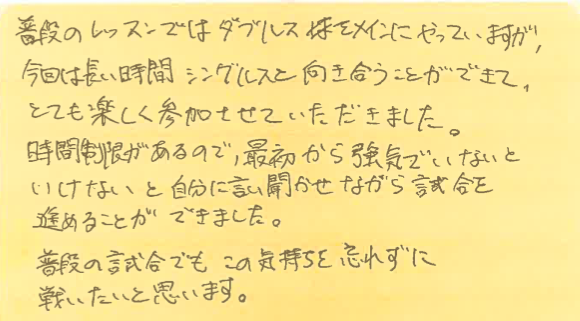 普段のレッスンではダブルス 様をメインにやっていますが、
今回は長い時間 シングルスと 向き合うことができて、
とても楽しく参加させていただきました。
時間制限があるので、最初から強気でいないと
いけないと自分に言い聞かせながら試合を
進めることができました。
普段の試合でも この気持ちを忘れずに
戦いたいと思います。